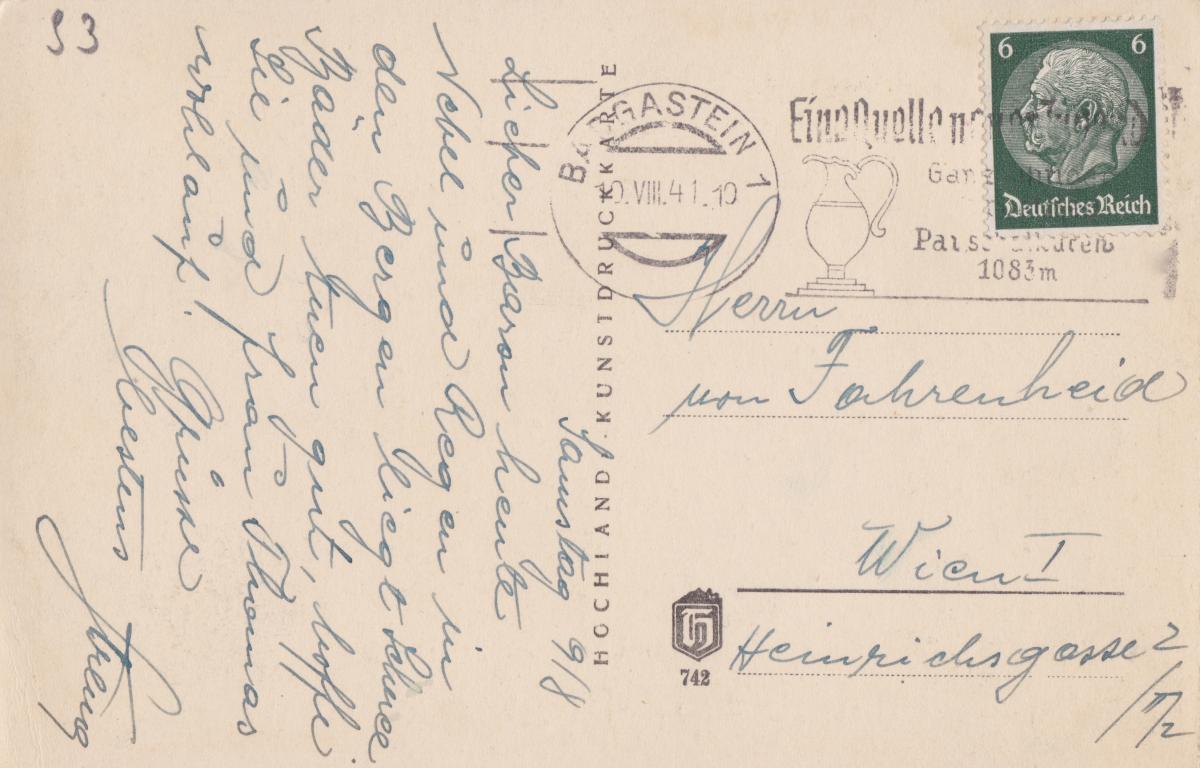 93
Samstag 9/8
Lieber Baron heute
Nebel und Regen in
den Bergen liegt Schnee
Bäder tuen gut, hoffe
Sie und Frau Thomas
wohlauf! Grüsse
Bestens
HOCHLAND-KUNSTDRUCKKARTE
BADGASTEIN 1
VIII.41.-19
Eine Quelle
Pauschalkuren
1083 m
6 6
Deutsches Reich
Herrn
von Fahrenheid
Wien I
Heinrichsgasse 2
742